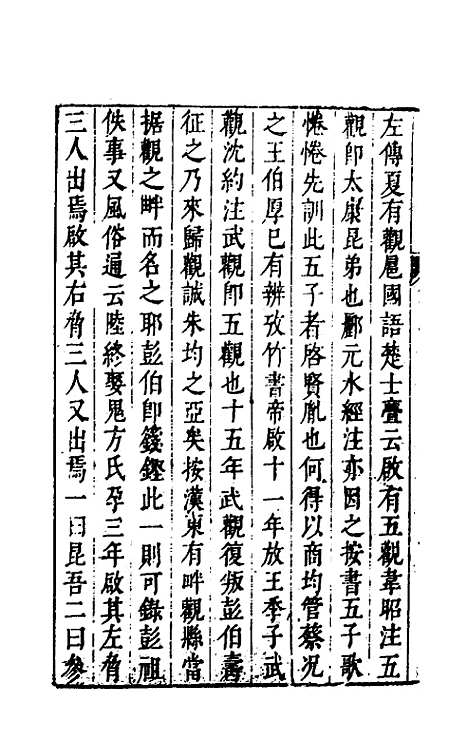 左傳夏有觀扈國語楚士亹云啟有五觀韋昭注五
觀卽太康昆弟也酈元水經注亦因之按書五子歌
惓惓先訓此五子者啓賢胤也何得以商均管蔡况
之王伯厚已有辨攷竹書帝啟十一年放王季子武
觀沈約注武觀卽五觀也十五年武觀復叛彭伯壽
征之乃來歸觀誠朱均之亞矣按漢東有畔觀縣當
据觀之畔而名之耶彭伯卽籛鏗此一則可錄彭祖
佚事又風俗通云陸終娶鬼方氏孕三年啟其左脅
三人出焉啟其右脅三人又出焉一曰昆吾二曰參